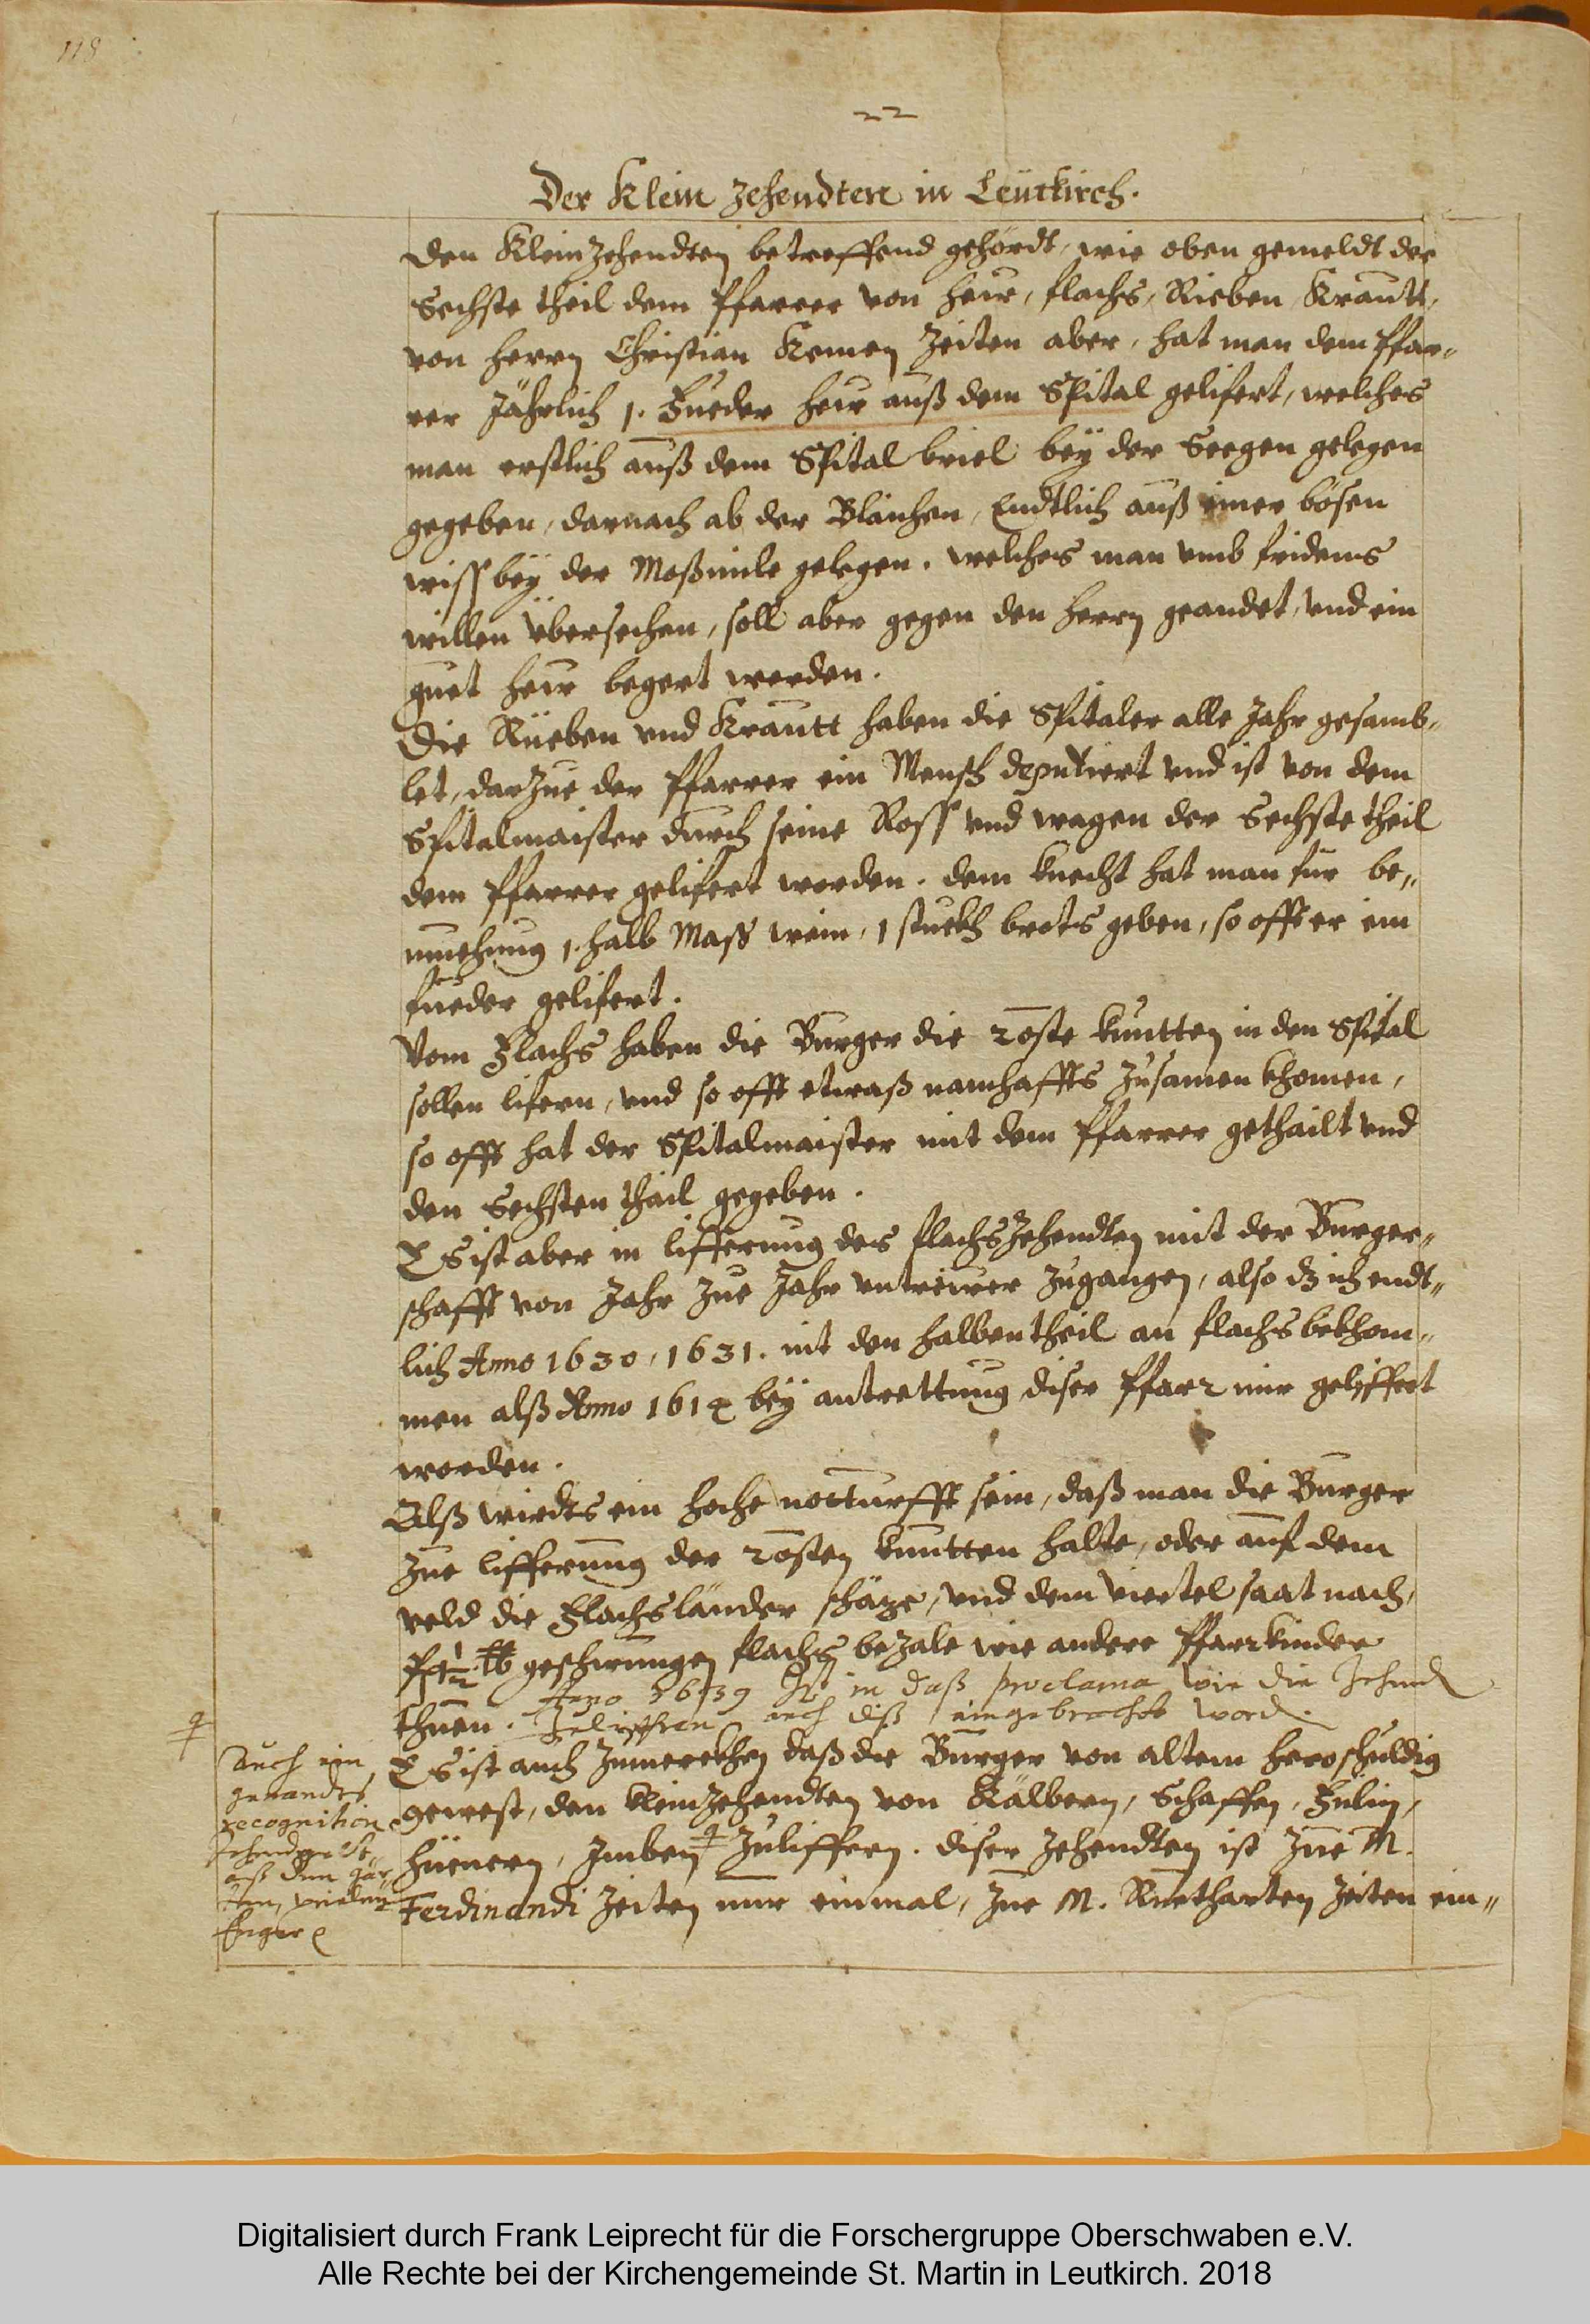 118
22
Der Klein Zehendten in Leütkirch.
Den Kleinzehendten betreffend gehördt, wie oben gemeldt der
Sechste theil dem Pfarrer von Heüw, flachs, Rieben, Krautt,
von herrn Christian Zeiten aber, hat man dem Pfar„
rer Jährlich 1. Fueder heüw auß dem Spital gelifert, welches
man erstlich auß dem Spital briel bey der Seegen gelegen
gegeben, darnach ab der Blaichen, Endtlich auß einer bösen
wiss bey der gelegen. welches man umb fridens
willen übersechen, soll aber gegen den herrn geandet, und ein
guet heüw begert werden.
Die Rüeben und Krautt haben die Spitaler alle Jahr gesamb„
let, darzue der Pfarrer ein Mensch deputiert und ist von dem
Spitalmaister durch seine Ross und wagen der Sechste theil
dem Pfarrer gelifert worden. dem knecht hat man für be„
muehung 1. halb Mass wein, 1 stuckh brots geben, so offt er ein
fueder gelifert.
Vom Flachs haben die Burger die 20ste kautten in den Spital
sollen lifern, und so offt etwaß namhaffts zusamen khomen,
so offt hat der Spitalmaister mit dem Pfarrer gethailt und
den Sechsten thail gegeben.
Es ist aber in lifferung des flachszehendten mit der Burger„
schafft von Jahr zue Jahr untreüwer zugangen, also dz ich endt„
lich Anno 1630, 1631. nit den halben theil an flachs bekhom„
men alß Anno 1614 bey antrettung diser Pfarr mir geliffert
worden.
Alß wirdts ein hoche notturfft sein, daß man die Burger
zue lifferung der 20sten kautten halte, oder auf dem
veld die Flachsländer schäze, und dem viertel saat nach,
½ lb geschwungen flachs bezale wie andere Pfarrkinder
thuen. Anno 1639 Ist in daß proclama wie die Zehend
Zeliffren auch diß eingebracht word.
Es ist auch Zuemerckhen daß die Burger von altem hero schuldig
gewest, den kleinzehendten von Kälbern, Schaffen, Fülin,
hüenern, Imben Zuliffern. diser Zehendten ist zue M.
Ferdinandi Zeiten nur einmal, zue M. Zeiten ein„
Auch ein
genandts
recognition
auß den gär„
ten,